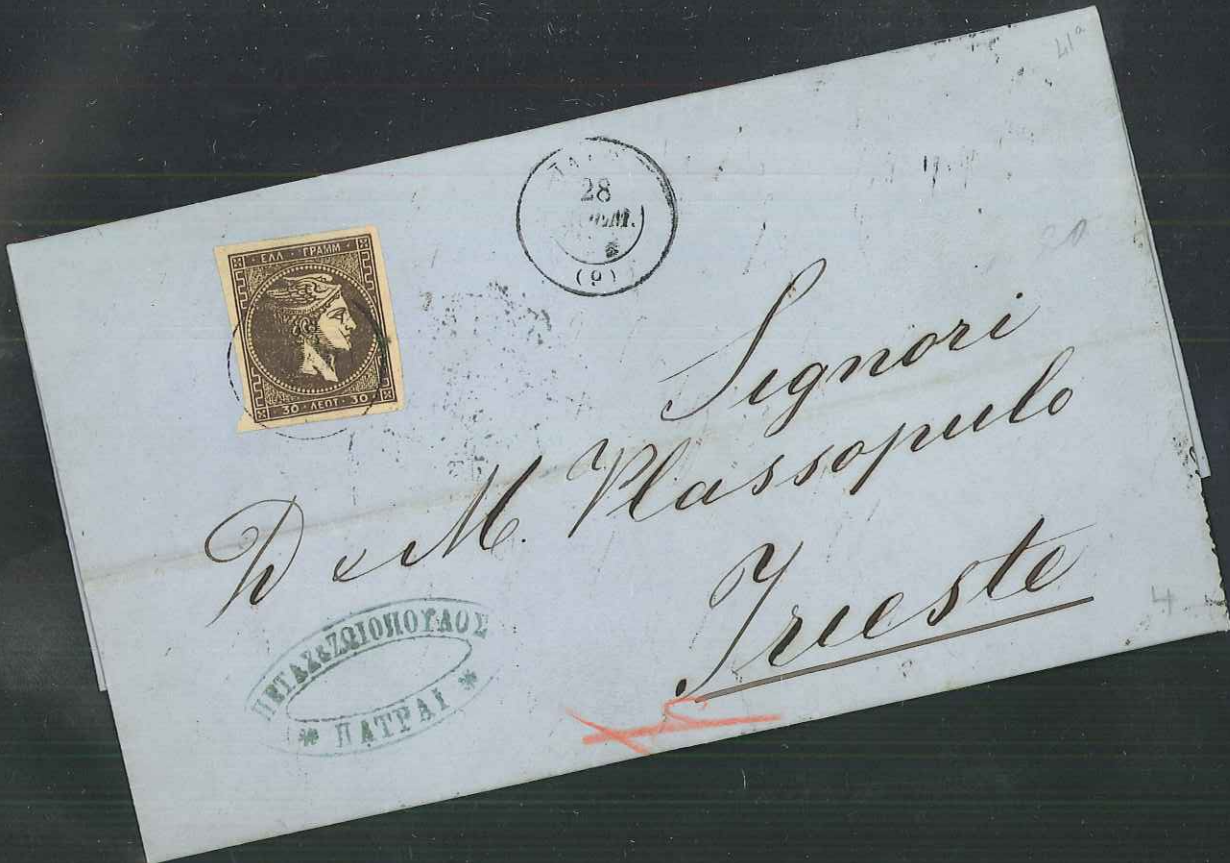 41a
28
(9)
ΕΛΛ · ΓΡΑΜΜ
30 · ΛΕΠΤ · 30
Signori
D & M. Vlassopulo
Trieste
ΠΕΤΑΣ & ΖΩΙΟΠΟΥΛΟΣ
* ΠΑΤΡΑΙ *
4